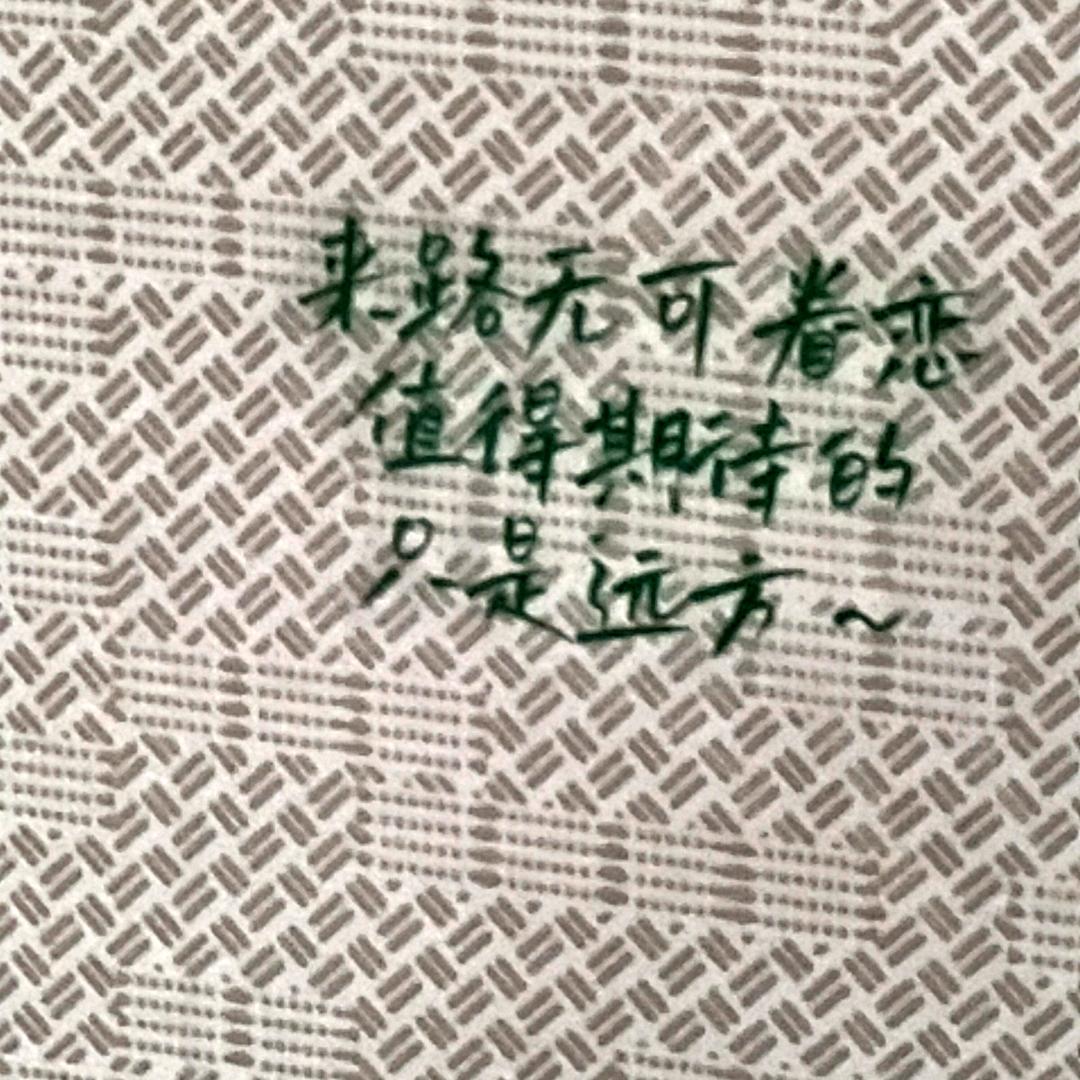 来路无可眷恋
值得期待的
只是远方~